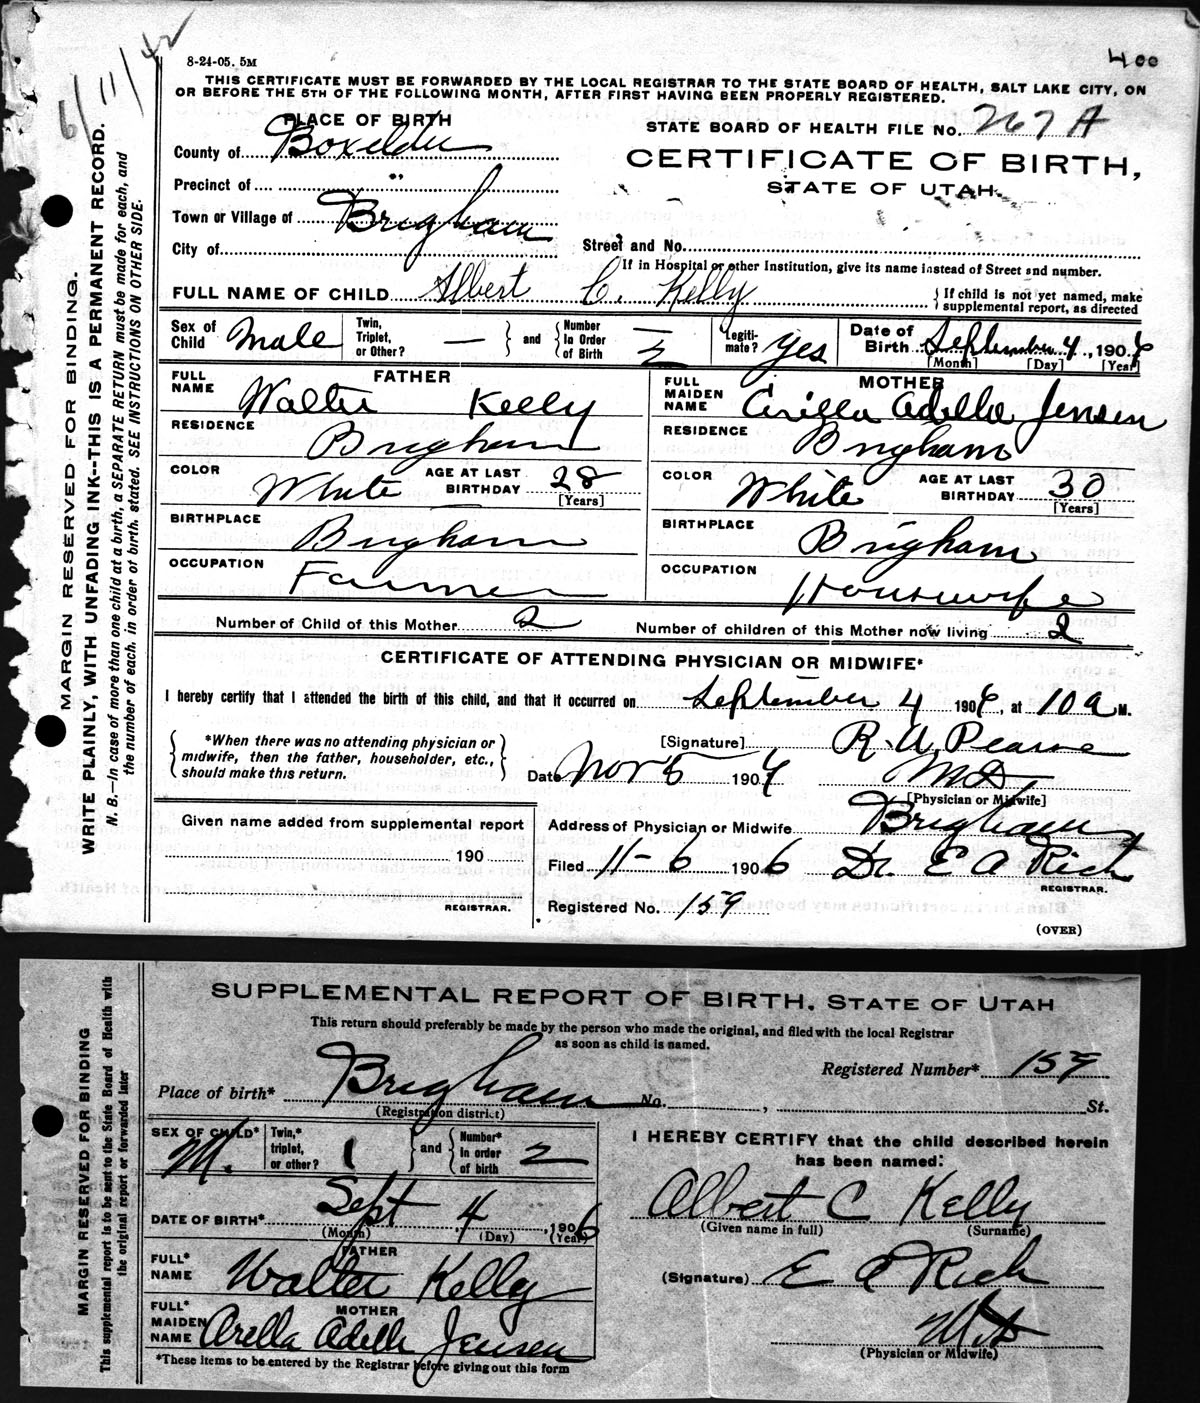 6/11/42
8-24-05. 5M
400
THIS CERTIFICATE MUST BE FORWARDED BY THE LOCAL REGISTRAR TO THE STATE BOARD OF HEALTH, SALT LAKE CITY, ON
OR BEFORE THE 5TH OF THE FOLLOWING MONTH, AFTER FIRST HAVING BEEN PROPERLY REGISTERED.
MARGIN RESERVED FOR BINDING.
WRITE PLAINLY, WITH UNFADING INK--THIS IS A PERMANENT RECORD.
N. B.—In case of more than one child at a birth, a SEPARATE RETURN must be made for each, and
the number of each, in order of birth, stated. SEE INSTRUCTIONS ON OTHER SIDE.
PLACE OF BIRTH
County of Boxelder
Precinct of "
Town or Village of Brigham
City of
STATE BOARD OF HEALTH FILE No. 267 A
CERTIFICATE OF BIRTH,
STATE OF UTAH.
Street and No.
If in Hospital or other Institution, give its name instead of Street and number.
FULL NAME OF CHILD Albert C. Kelly { If child is not yet named, make
supplemental report, as directed
Sex of Child Male Twin, Triplet, or Other? — and Number In Order of Birth 2 Legiti-mate? yes Date of Birth September 4, 1906
[Month] [Day] [Year]
FATHER
FULL NAME Walter Kelly
RESIDENCE Brigham
COLOR White AGE AT LAST BIRTHDAY 28
[Years]
BIRTHPLACE Brigham
OCCUPATION Farmer
MOTHER
FULL MAIDEN NAME Adella Jensen
RESIDENCE Brigham
COLOR White AGE AT LAST BIRTHDAY 30
[Years]
BIRTHPLACE Brigham
OCCUPATION Housewife
Number of Child of this Mother 2 Number of children of this Mother now living 2
CERTIFICATE OF ATTENDING PHYSICIAN OR MIDWIFE*
I hereby certify that I attended the birth of this child, and that it occurred on September 4 1906, at 10 a M.
*When there was no attending physician or
midwife, then the father, householder, etc.,
should make this return.
[Signature] R. W. Pearse
Date Nov 5 1906 M D
[Physician or Midwife]
Given name added from supplemental report
190
REGISTRAR.
Address of Physician or Midwife Brigham
Filed 11-6 1906 Dr. E A Rich
REGISTRAR.
Registered No. 159
(OVER)
MARGIN RESERVED FOR BINDING
This supplemental report is to be sent to the State Board of Health with
the original report or forwarded later
SUPPLEMENTAL REPORT OF BIRTH, STATE OF UTAH
This return should preferably be made by the person who made the original, and filed with the local Registrar
as soon as child is named.
Registered Number* 159
Place of birth* Brigham No. , St.
(Registration district)
SEX OF CHILD* M. Twin,* triplet, or other? 1 and Number* in order of birth 2
DATE OF BIRTH* Sept 4, 1906
(Month) (Day) (Year)
FATHER
FULL* NAME Walter Kelly
MOTHER
FULL* MAIDEN NAME Arella Adelle Jensen
*These items to be entered by the Registrar before giving out this form
I HEREBY CERTIFY that the child described herein
has been named:
Albert C Kelly
(Given name in full) (Surname)
(Signature) E A Rich
M D
(Physician or Midwife)